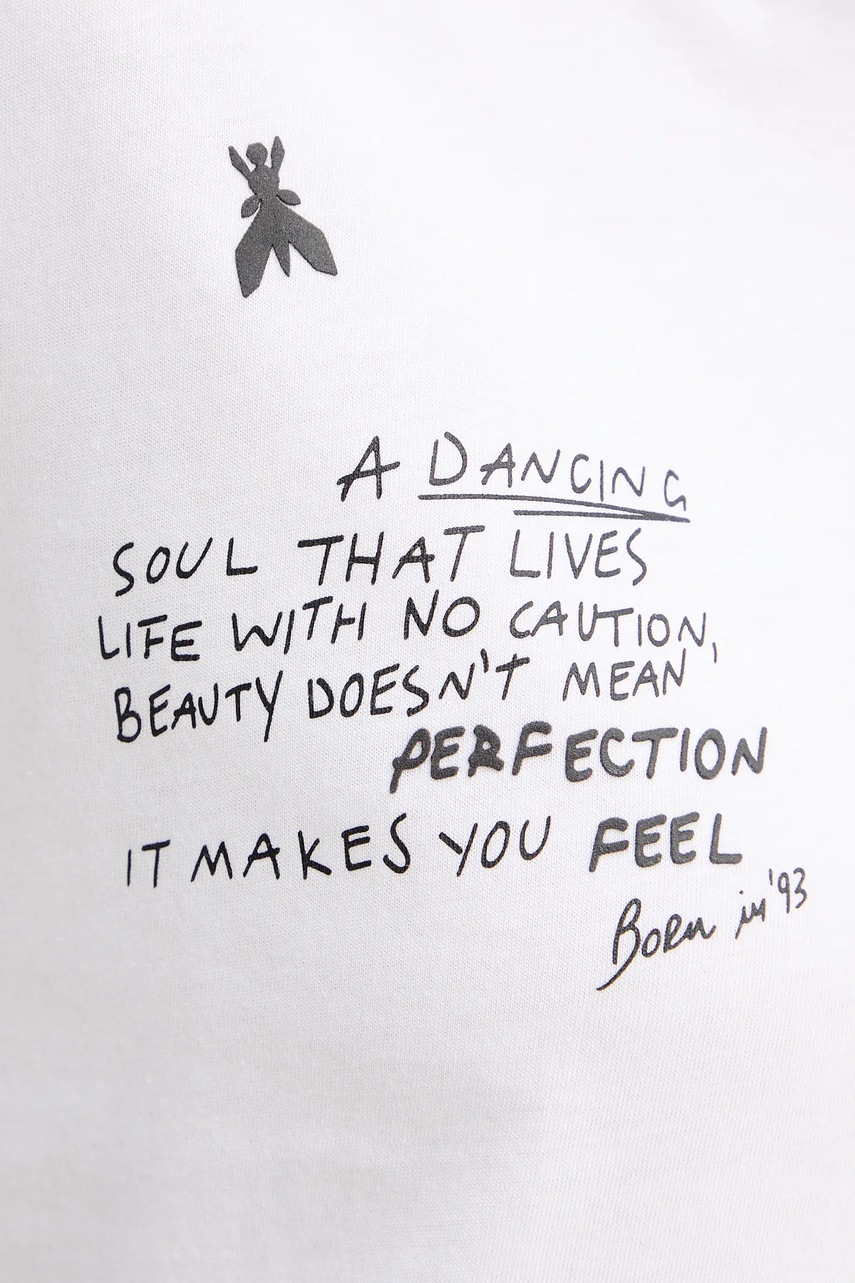 A DANCING
SOUL THAT LIVES
LIFE WITH NO CAUTION,
BEAUTY DOESN'T MEAN
PERFECTION
IT MAKES YOU FEEL
Born in '93